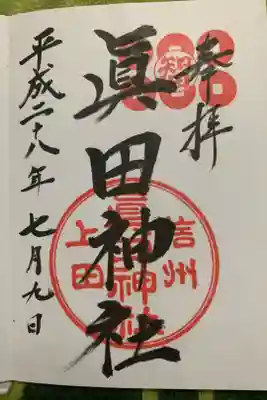 奉拝
眞田神社
信州
上田
眞田神社
平成二十八年七月九日